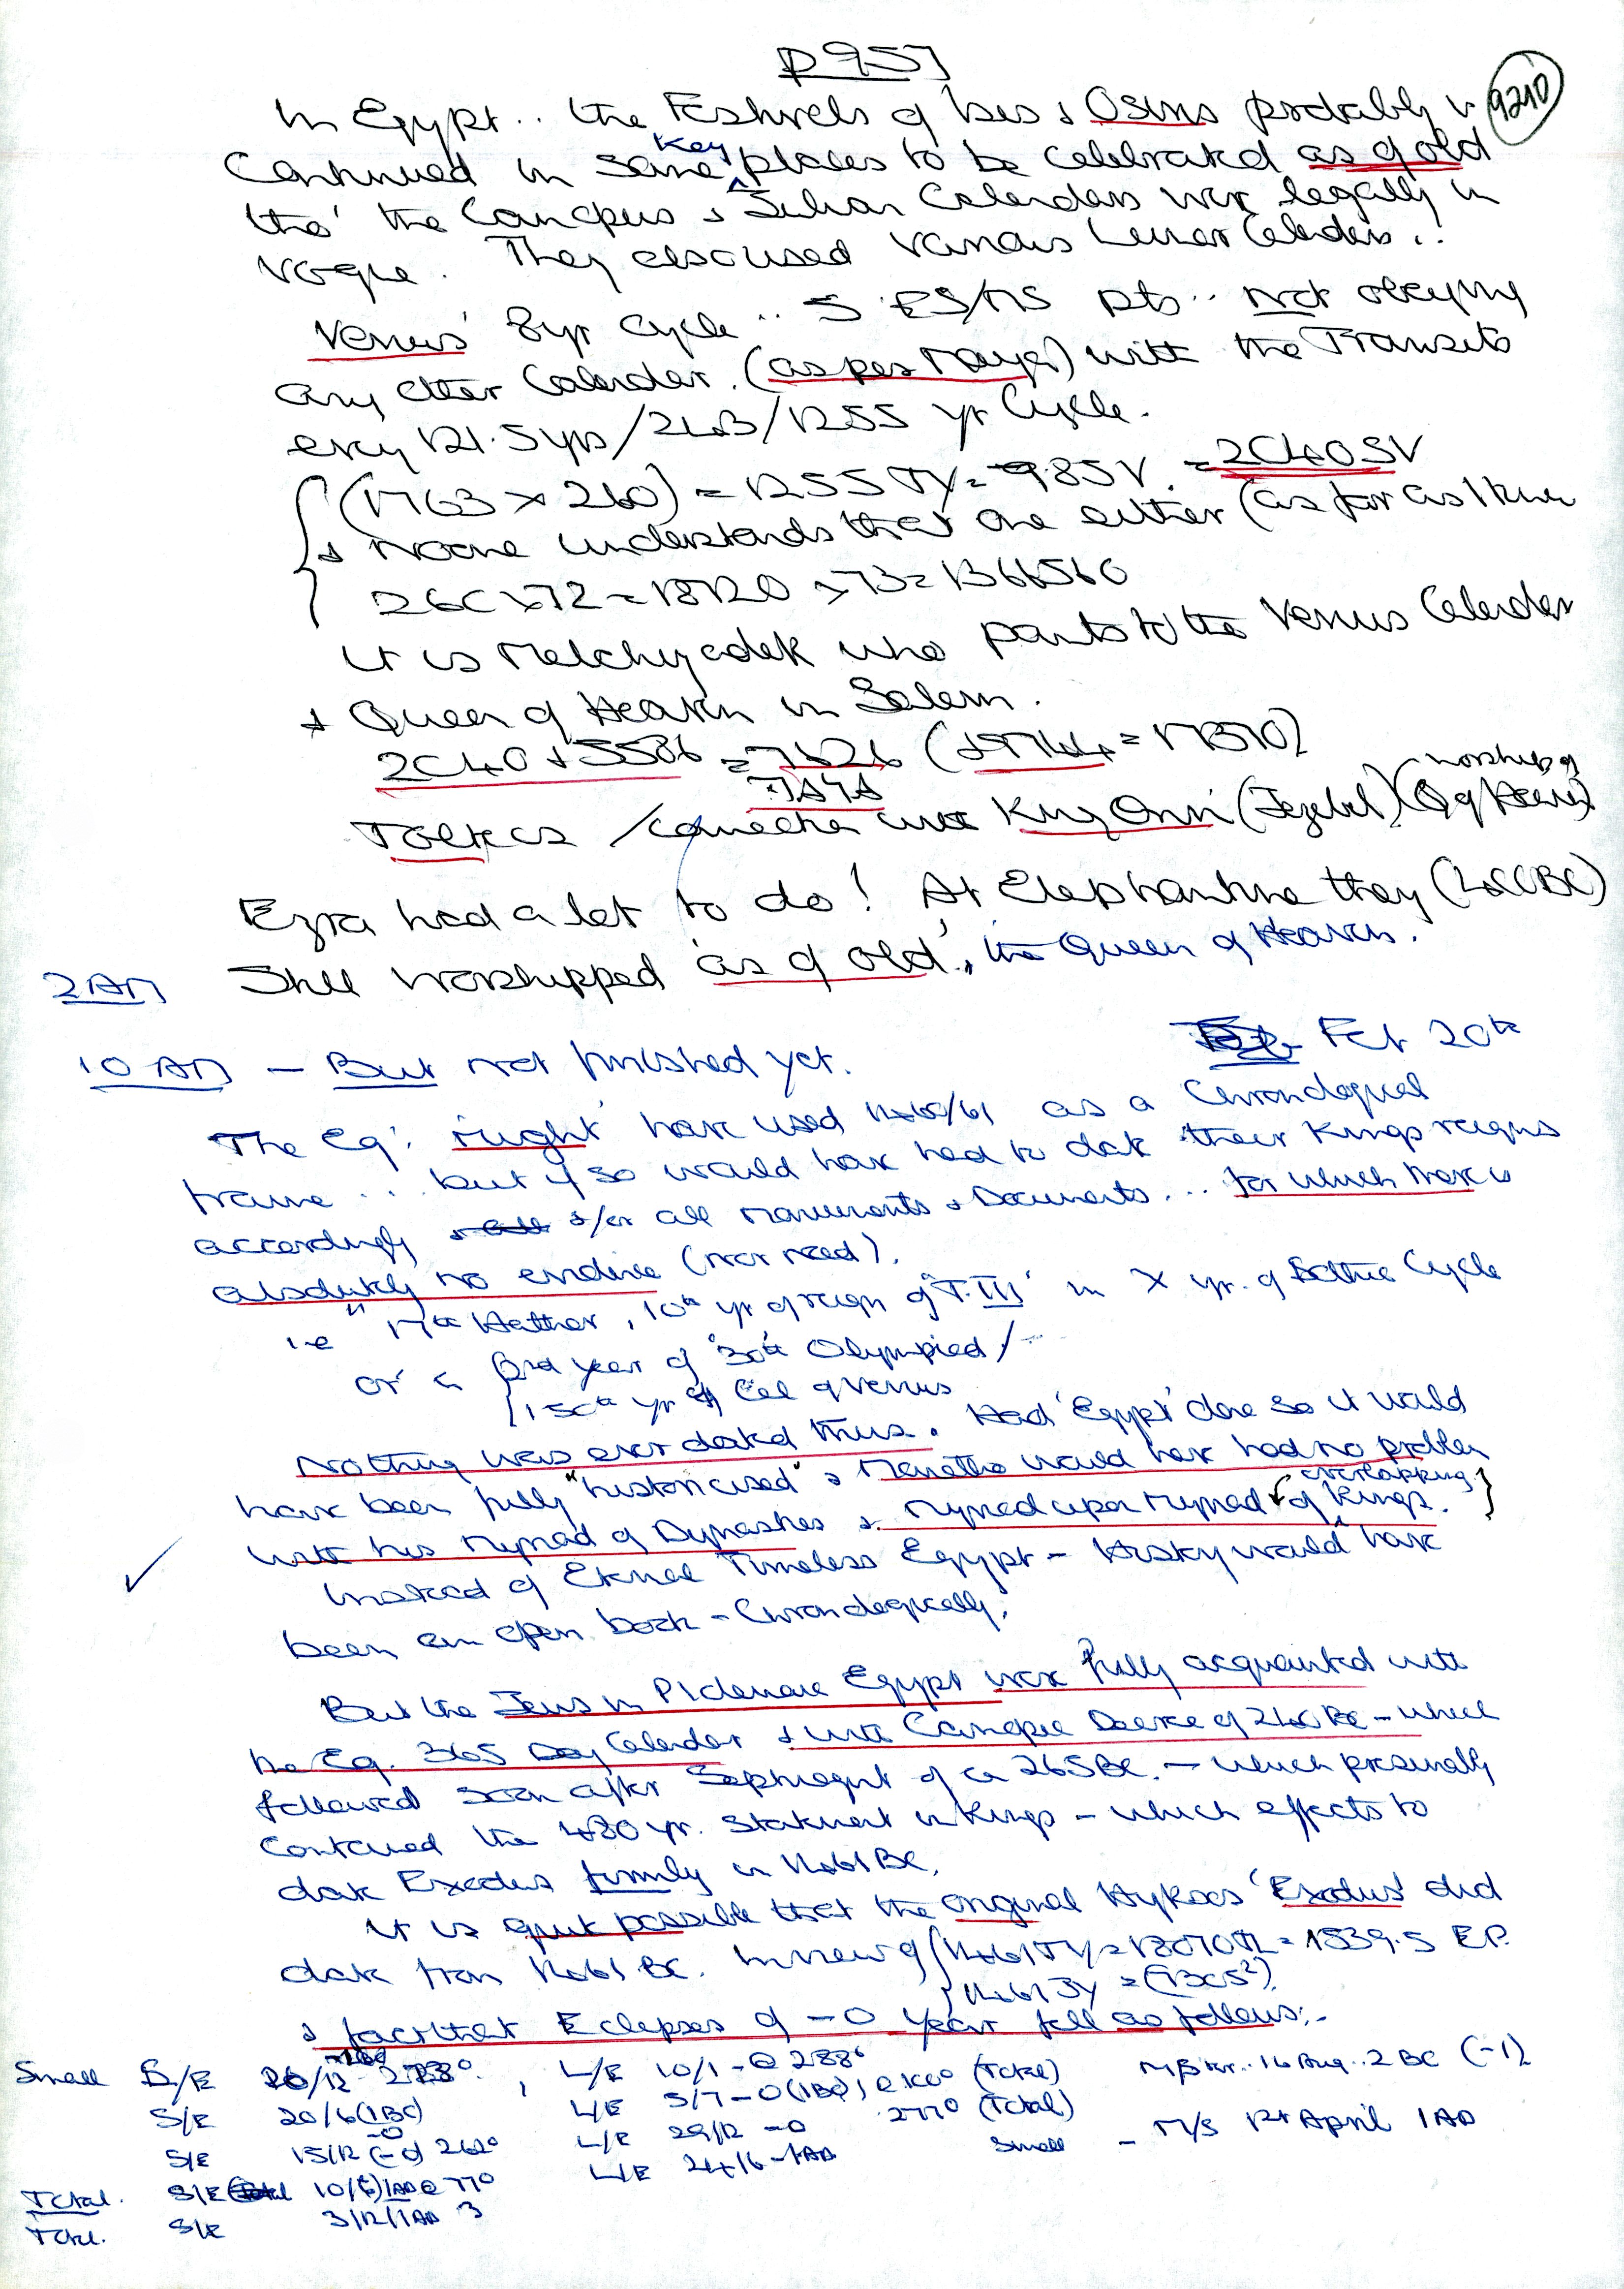 p 957
9210
In Egypt.. the Festivals of Isis & Osiris probably
Continued in some Key places to be celebrated as of old
tho' the Canopus & Julian Calendars were legally in
Vogue. They also used various Lunar Calendars..
Venus' 8yr Cycle .. 5 ES/MS pts.. not obeying
any other Calendar. (as per Maya) with the Transits
every 121.5 yrs/243/1255 yr Cycle.
(1763 × 260) = 1255 TY = 785V. = 2040SV
& Noone understands that one either (as far as I know
260 × 72 = 18720 × 73 = 1366560
It is Melchyzadek who points to the Venus Calendar
& Queen of Heaven in Salem.
2040 + 5586 = 7626 = 17370)
MAYA
Toltecs / connection with King Omri (Jezebel) (worship of Q of Heaven)
Ezra had a lot to do! At Elephantine they (400BC)
Still worshipped 'as of old', the Queen of Heaven.
2AM
10 AM - But not finished yet. Feb 20th
The Eg'. might have used 1460/61 as a Chronological
frame ... but if so would have had to date their Kings reigns
accordingly &/or all Monuments & Documents... for which there is
absolutely no evidence (nor need).
i.e "17th Hathor, 10th yr of reign of T.III' in X yr. of Sothic Cycle
or in 2nd year of 30th Olympiad/-
150th yr of Cal of Venus
Nothing was ever dated thus. Had 'Egypt' done so it would
have been fully "historicised" & Manetho would have had no problem
with his Myriad of Dynasties & myriad upon myriad of overlapping Kings.
Instead of Eternal Timeless Egypt - History would have
been an open book - Chronologically.
But the Jews in Ptolemaic Egypt were fully acquainted with
the Eg. 365 Day Calendar & with Canopic Decree of 240 BC - which
followed soon after Septuagint of ca 265BC. - which presumably
contained the 480 yr. Statement in Kings - which effects to
date Exodus firmly in 1461 BC.
It is quite possible that the original Hyksos 'Exodus' did
date from 1461 BC. In view of 1461 TY = 18070 = 1539.5 E.P.
1461 JY = (7305²)
& fact that Eclipses of -0 Year fell as follows:-
Small S/E 26/12 278°. , L/E 10/1 -0 288° (Total) 16 Aug.. 2 BC (-1)
S/E 20/6 (1BC) L/E 5/7 -0 (1BC) (Total)
S/E 15/12 (-0) 262° L/E 29/12 -0 277° small - M/S 12th April 1AD
Total. S/E 10/(6)1AD@77° L/E 24/6 -1AD
Total. S/E 3/12/1AD